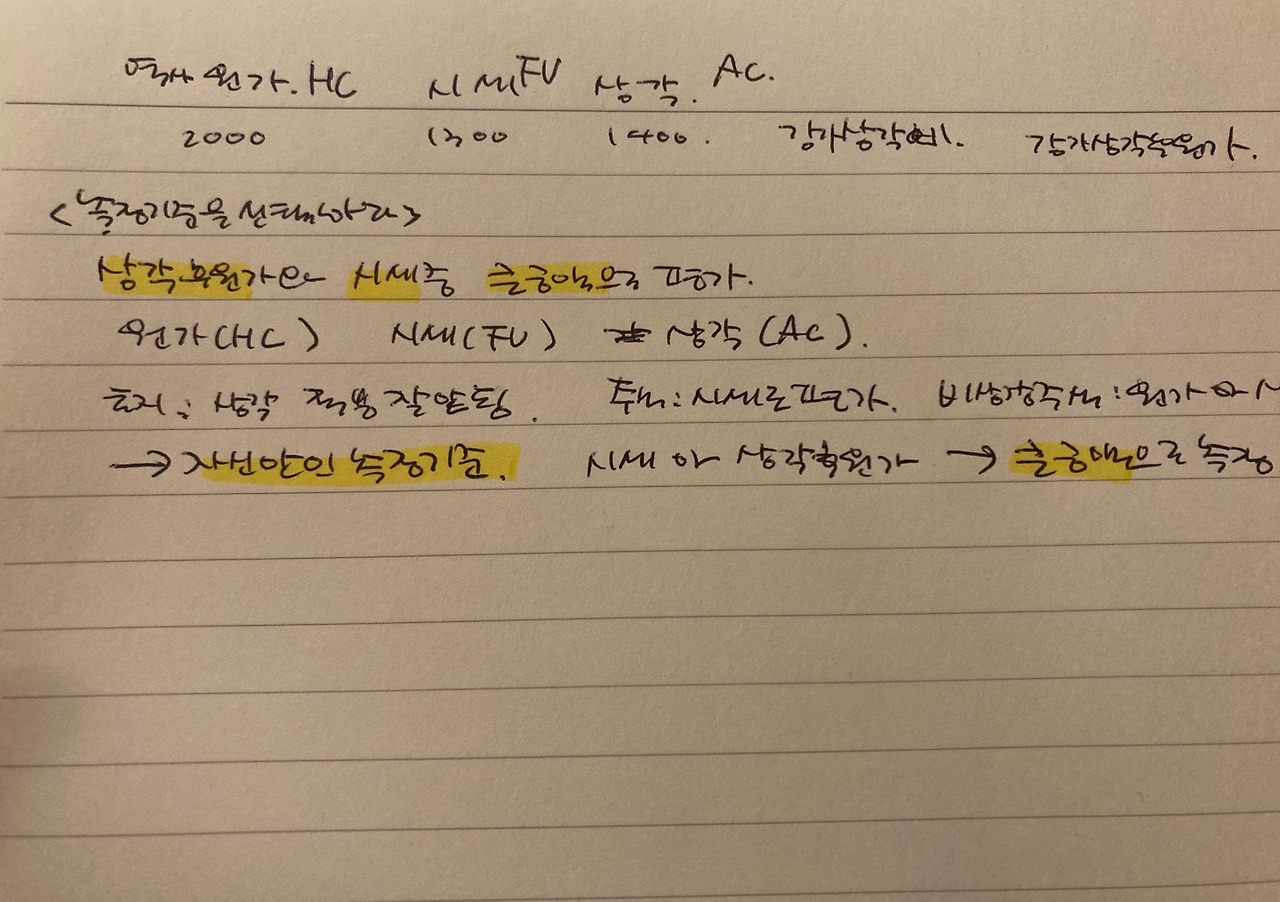 역사원가.HC 시세FV 상각. AC.
2000 1300 1400. 감가상각비. 감가상각후원가.
<측정기준을 선택하라>
상각후원가와 시세중 큰금액으로 평가.
원가(HC) 시세(FV) 상각(AC).
토지: 상각 적용 잘안됨. 주식:시세로평가. 비상장주식:원가
→자신만의 측정기준. 시세 와 상각후원가 → 큰금액으로 측정